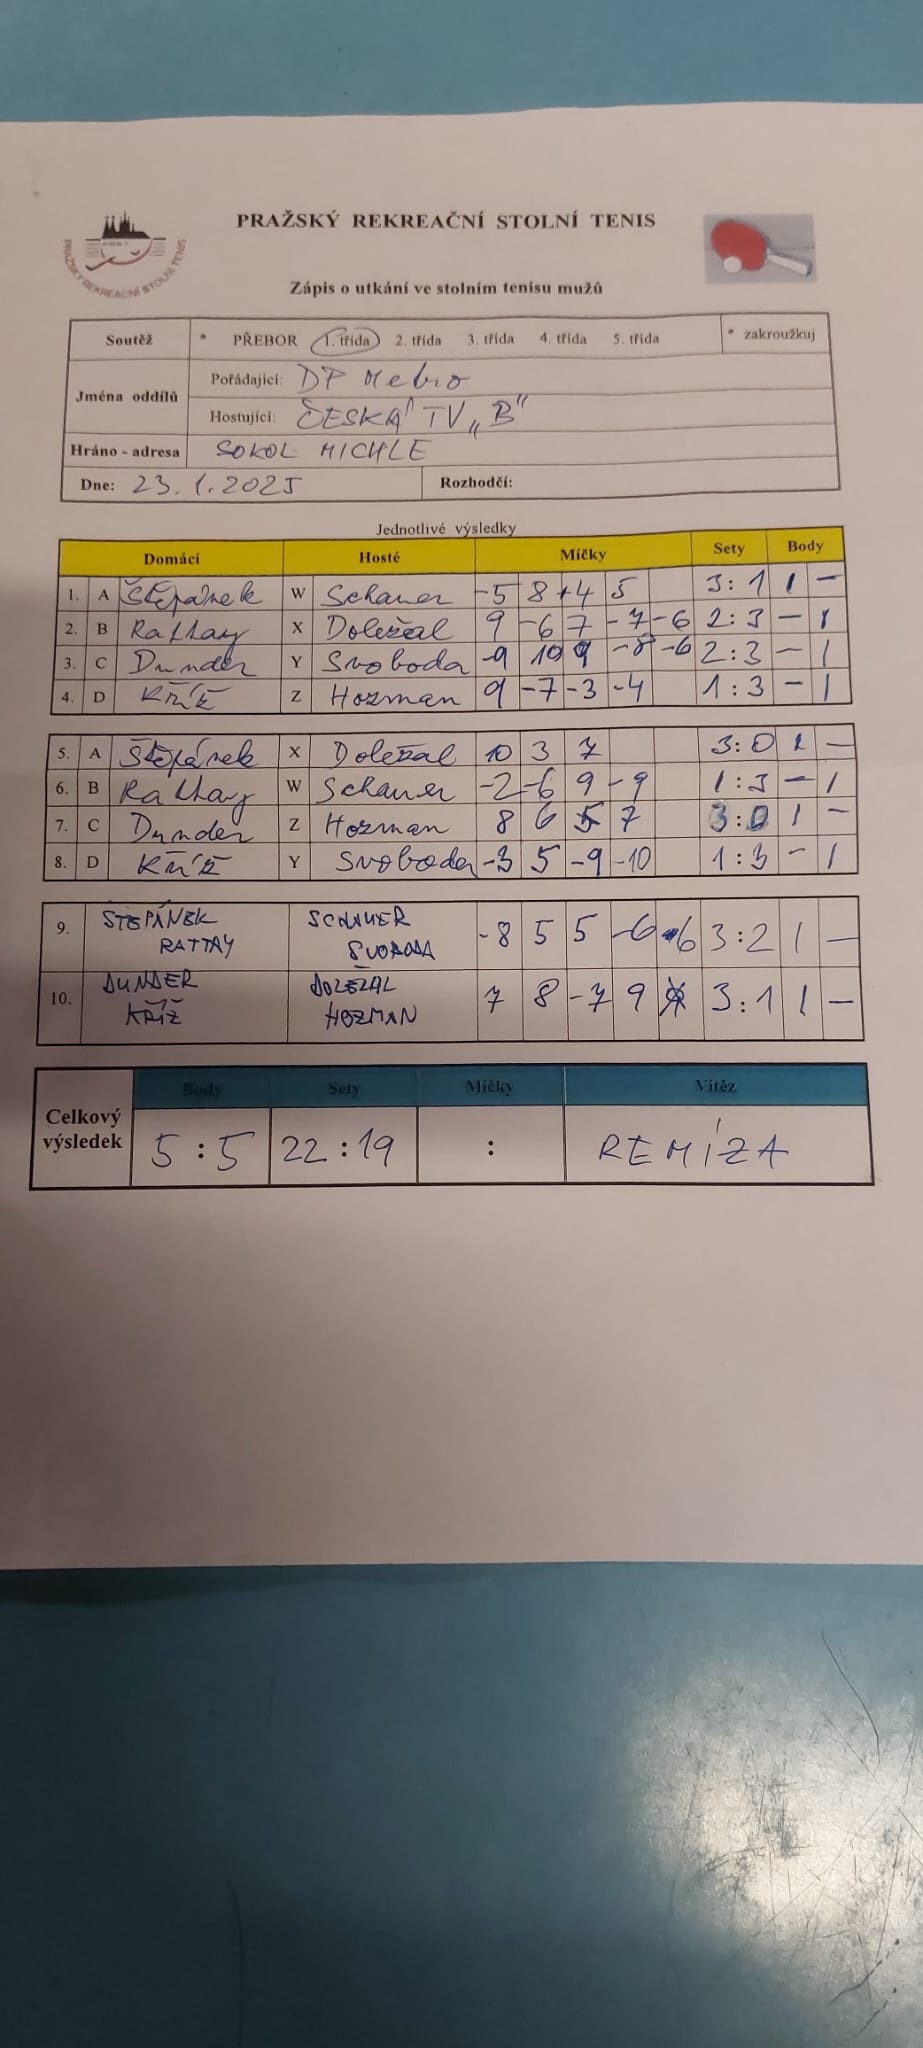 PRAŽSKÝ REKREAČNÍ STOLNÍ TENIS
PRAŽSKÝ REKREAČNÍ STOLNÍ TENIS
Zápis o utkání ve stolním tenisu mužů
Soutěž * PŘEBOR 1. třída 2. třída 3. třída 4. třída 5. třída * zakroužkuj
Jména oddílů
Pořádající: DP Metro
Hostující: ČESKÁ TV „B"
Hráno - adresa SOKOL MICHLE
Dne: 23.1.2025 Rozhodčí:
Jednotlivé výsledky
Domácí Hosté Míčky Sety Body
1. A Štěpánek W Schauer -5 8 +4 5 3:1 1 -
2. B Rattay X Doležal 9 -6 7 -7 -6 2:3 - 1
3. C Dunder Y Svoboda -9 10 9 -8 -6 2:3 - 1
4. D Kříž Z Hozman 9 -7 -3 -4 1:3 - 1
5. A Štěpánek X Doležal 10 3 7 3:0 1 -
6. B Rattay W Schauer -2 -6 9 -9 1:3 - 1
7. C Dunder Z Hozman 8 6 7 3:0 1 -
8. D Kříž Y Svoboda -3 5 -9 -10 1:3 - 1
9. ŠTĚPÁNEK SCHAUER -8 5 5 -6 6 3:2 1 -
RATTAY SVOBODA
10. DUNDER DOLEŽAL 7 8 -7 9 3:1 1 -
KŘÍŽ HOZMAN
Body Sety Míčky Vítěz
Celkový výsledek 5:5 22:19 : REMÍZA